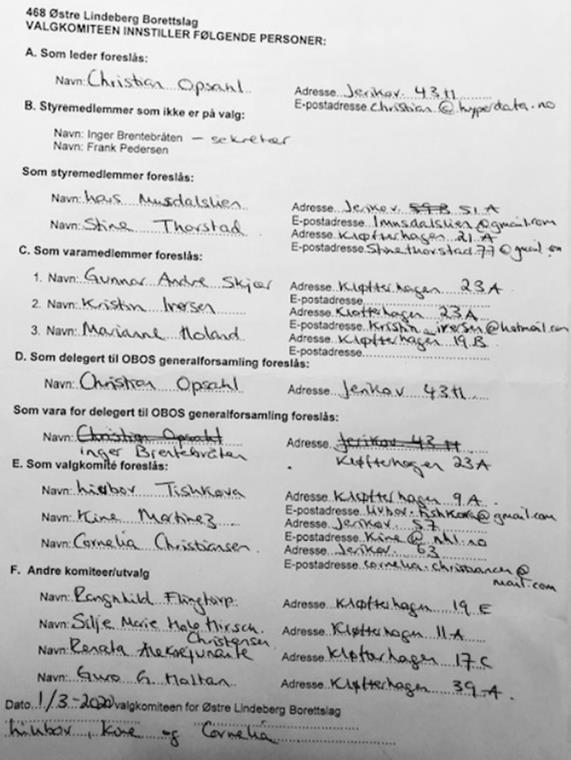 468 Østre Lindeberg Borettslag
VALGKOMITEEN INNSTILLER FØLGENDE PERSONER:
A. Som leder foreslås:
Navn: Christian Opsahl Adresse Jerikov. 43 H
E-postadresse christian@hyperdata.no
B. Styremedlemmer som ikke er på valg:
Navn: Inger Brentebråten – sekretær
Navn: Frank Pedersen
Som styremedlemmer foreslås:
Navn: Lars Musdalslien Adresse Jerikov. 51 A
E-postadresse lmusdalslien@gmail.com
Navn: Stine Thorstad Adresse Kløfterhagen 21 A
E-postadresse Stinethorstad77@gmail.com
C. Som varamedlemmer foreslås:
1. Navn: Gunnar Andre Skjær Adresse Kløfterhagen 23 A
E-postadresse
2. Navn: Kristin Iversen Adresse Kløfterhagen 23A
E-postadresse Kristin_iversen@hotmail.com
3. Navn: Marianne Holand Adresse Kløfterhagen 19 B
E-postadresse
D. Som delegert til OBOS generalforsamling foreslås:
Navn: Christian Opsahl Adresse Jerikov 43 H
Som vara for delegert til OBOS generalforsamling foreslås:
Navn: Christian Opsahl Adresse Jerikov 43 H
Inger Brentebråten Kløfterhagen 23 A
E. Som valgkomité foreslås:
Navn: Liubov Tishkova Adresse Kløfterhagen 9 A
E-postadresse liubov.tishkova@gmail.com
Navn: Kine Martinez Adresse Jerikov. 57
E-postadresse Kine@nhl.no
Navn: Cornelia Christiansen Adresse Jerikov. 63
E-postadresse cornelia.christiansen@
mail.com
F. Andre komiteer/utvalg
Navn: Ragnhild Flingtorp Adresse Kløfterhagen 19 E
Navn: Silje Marie Hirsch Adresse Kløfterhagen 11 A
Christensen
Navn: Renata Aleksejunaite Adresse Kløfterhagen 17 C
Navn: Guro G Haltan Adresse Kløfterhagen 39 A
Dato 1/3-2020 valgkomiteen for Østre Lindeberg Borettslag
Liubov, Kine og Cornelia